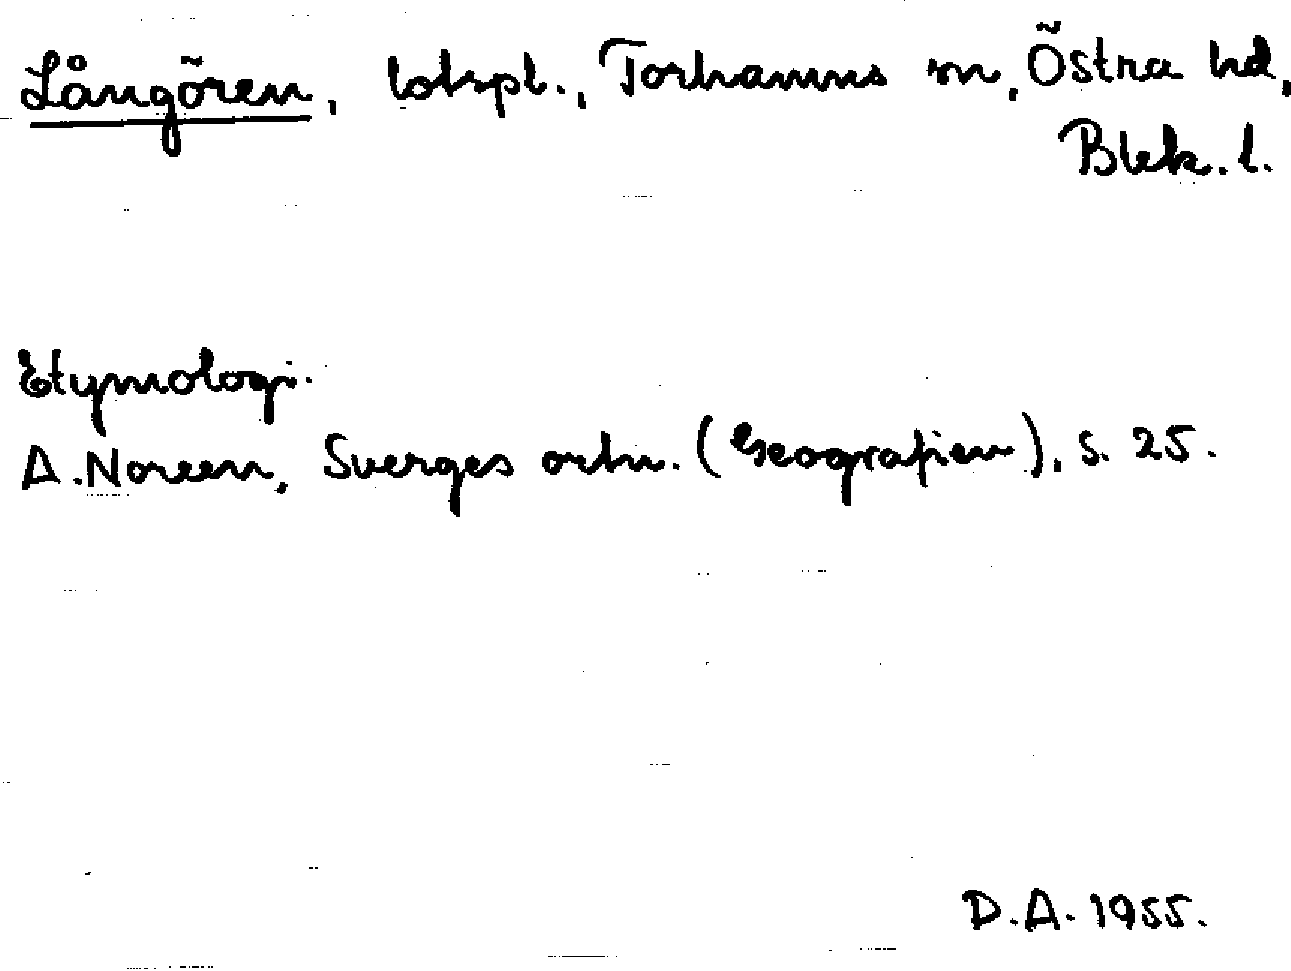 Långören, lotspl., Torhamns sn, Östra hd,
Blek. l.
Etymologi.
A. Noreen, Sverges ortn. (Geografien), s. 25.
D.A. 1955.